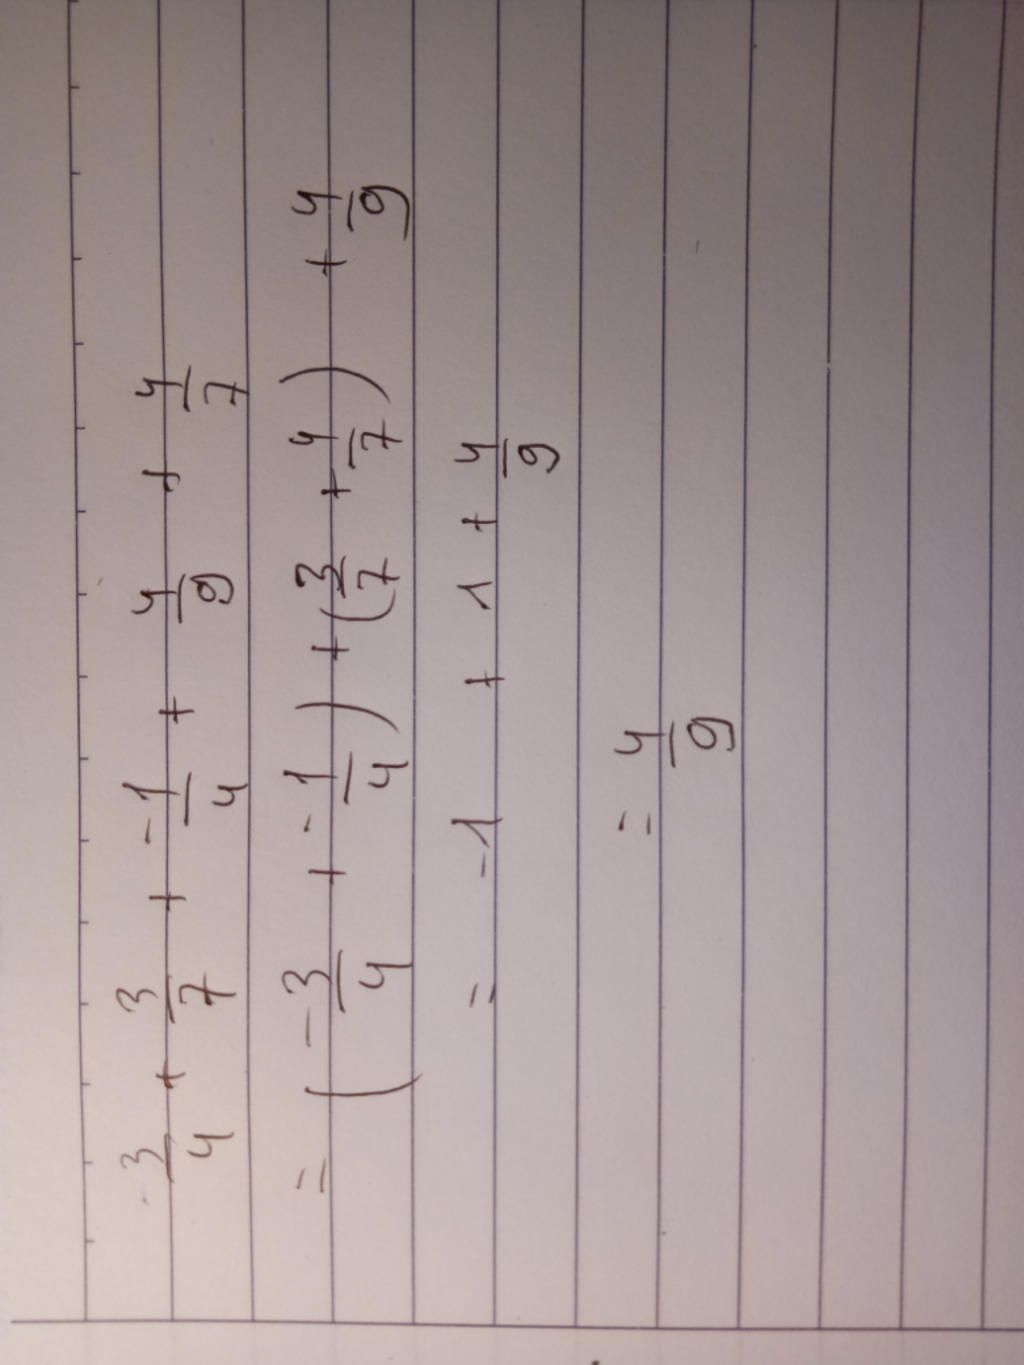 -3/4 + 3/7 + -1/4 + 4/9 + 4/7
= (-3/4 + -1/4) + (3/7 + 4/7) + 4/9
= -1 + 1 + 4/9
= 4/9